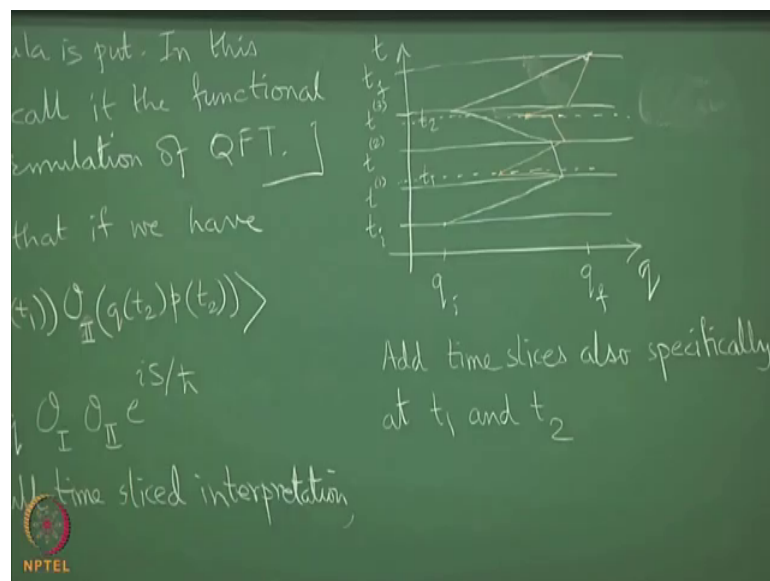 ula is put. In this
call it the functional
rmulation of QFT. ]
that if we have
(t₁)) O_II (q(t₂) p(t₂)) >
O_I O_II e^{iS/ħ}
time sliced interpretation,
t
t_f
t^(3)
t₂
t^(2)
t₁
t^(1)
t_i
q_i q_f q
Add time slices also specifically
at t₁ and t₂
NPTEL